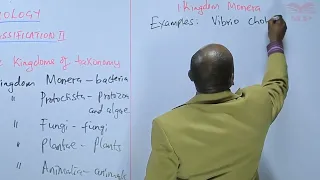 BIOLOGY
CLASSIFICATION II
Kingdoms of taxonomy
Kingdom Monera – bacteria
" Protoctista – protozoa and algae
" Fungi – fungi
" Plantae – Plants
" Animalia – animals
1 Kingdom Monera
Examples: Vibrio chol